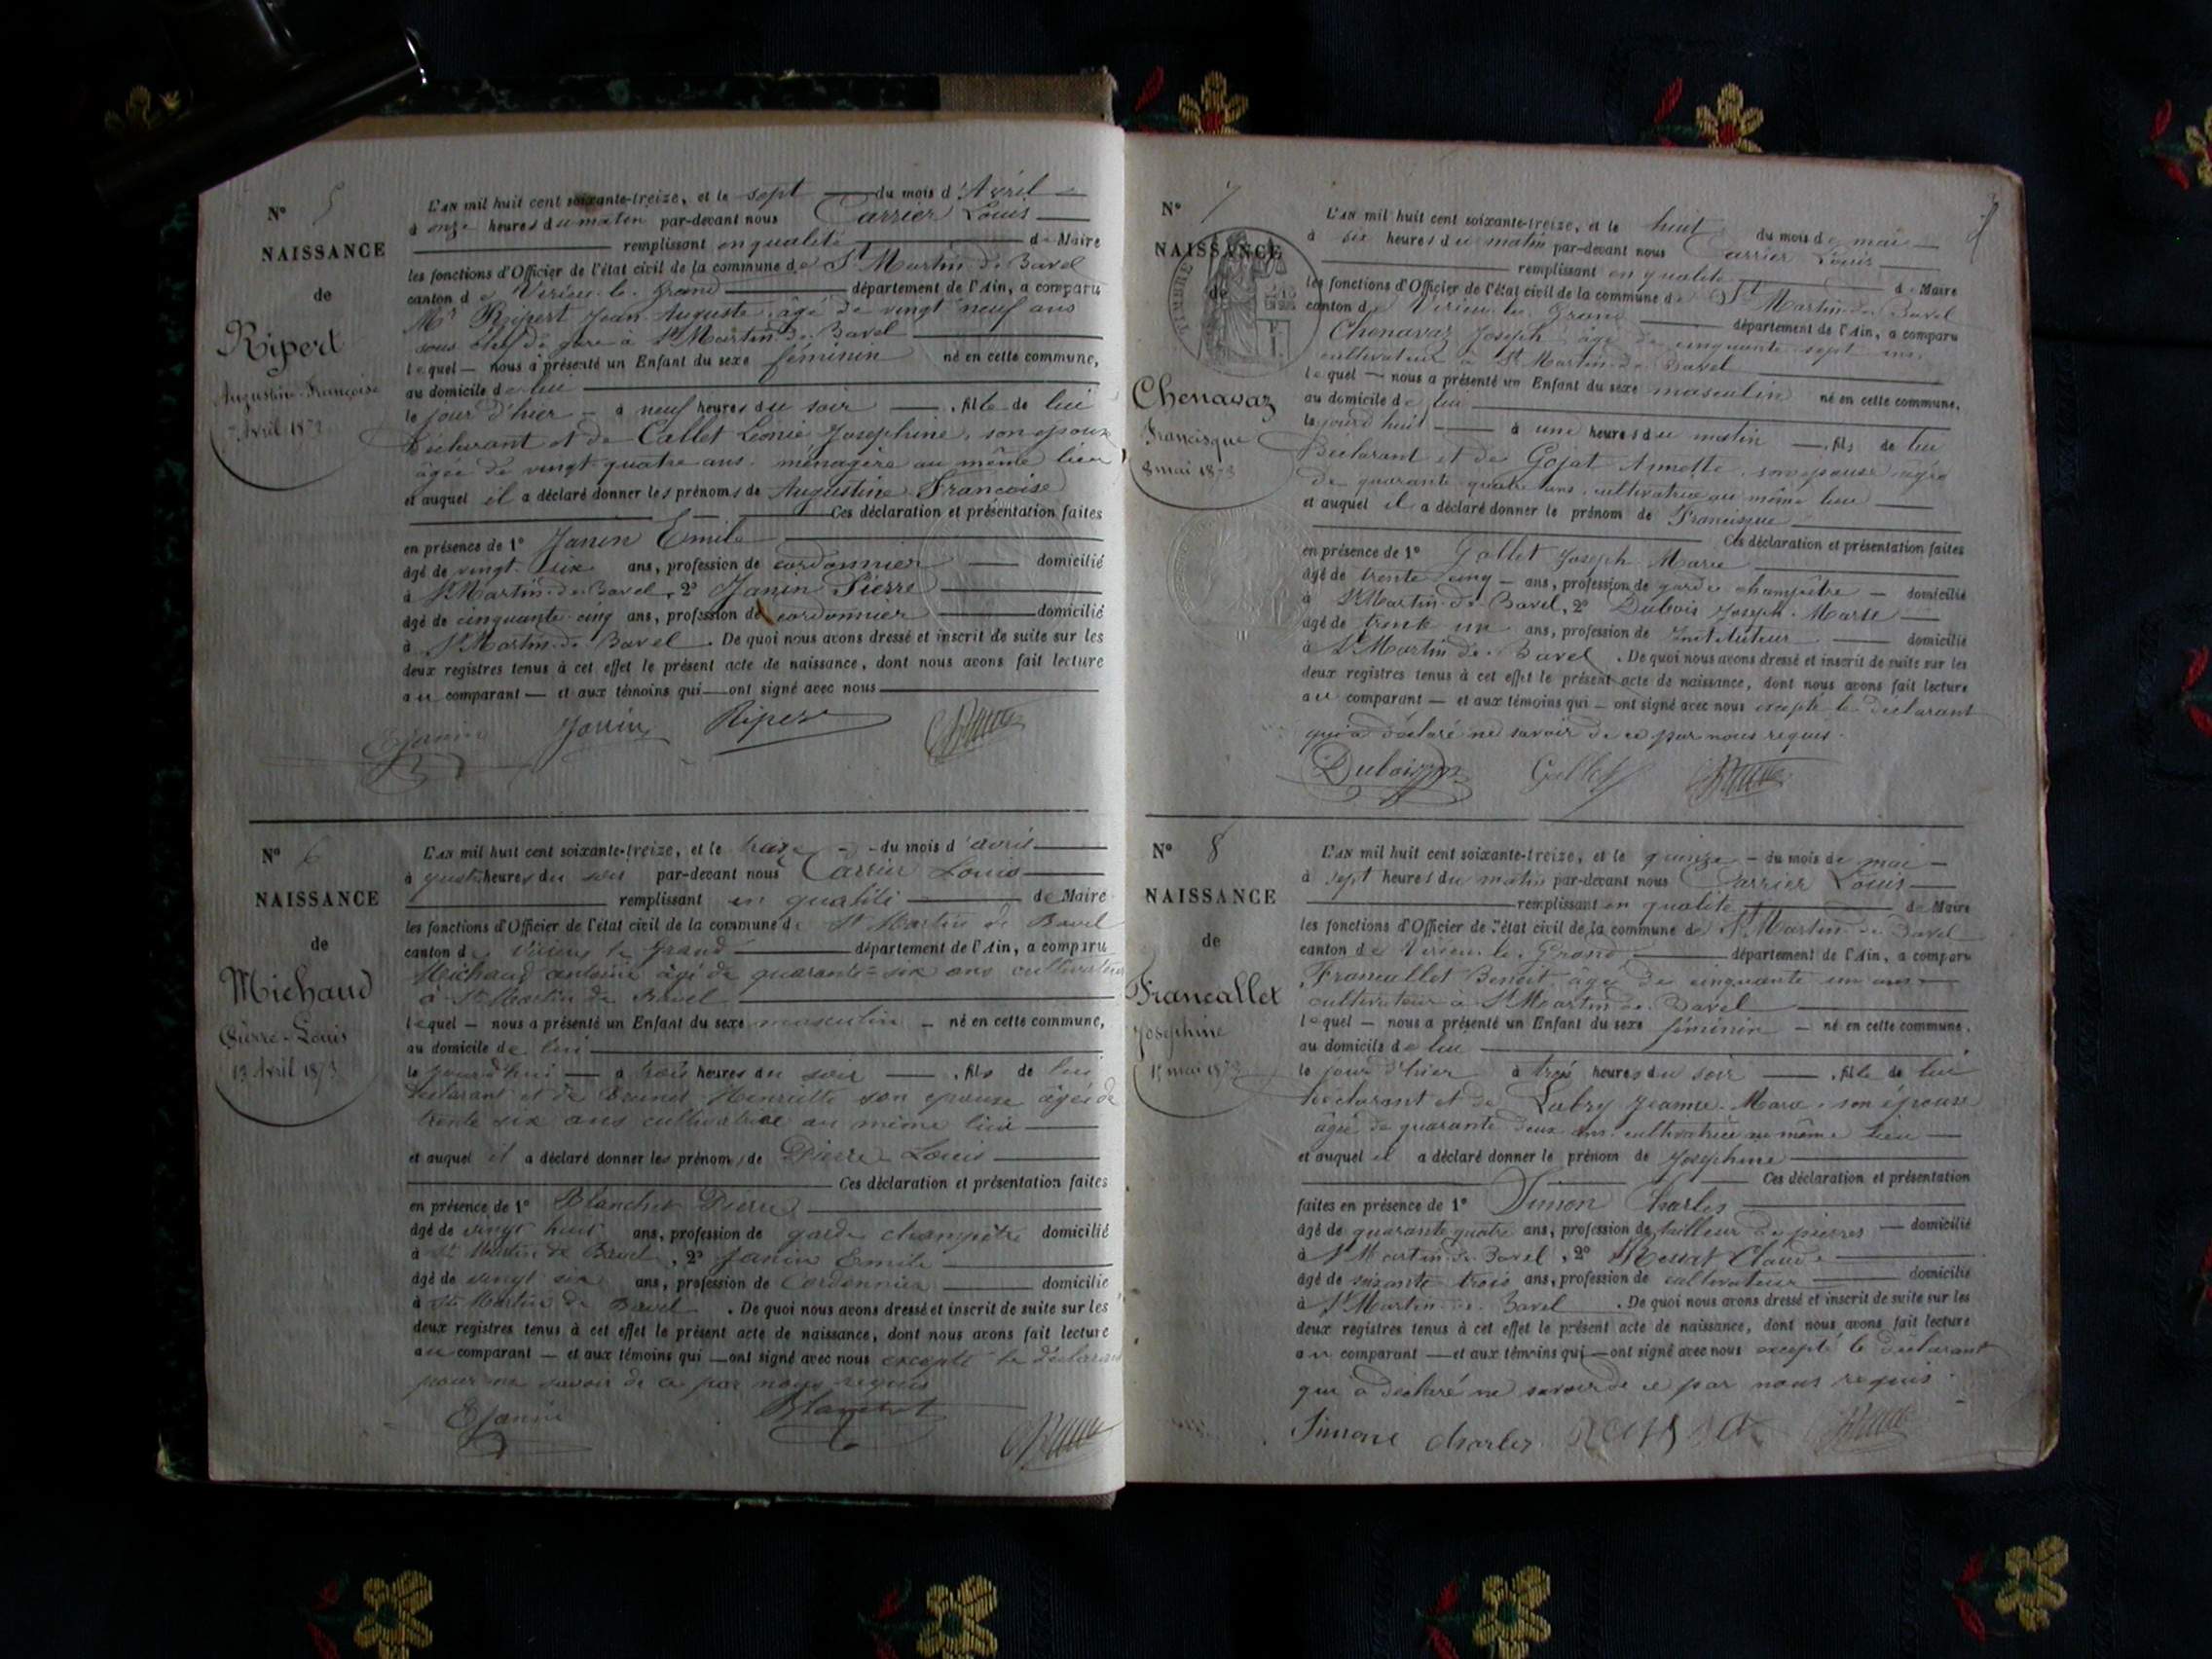 N° 5
NAISSANCE
de
Ripert
Augustine Françoise
7 Avril 1873
L'AN mil huit cent soixante-treize, et le sept du mois d'Avril
à onze heures du matin par-devant nous Carrier Louis
remplissant en qualité de Maire
les fonctions d'Officier de l'état civil de la commune de St Martin de Bavel
canton de Virieu le Grand département de l'Ain, a comparu
Mr Ripert Jean Auguste, âgé de vingt neuf ans
sous chef de gare à St Martin de Bavel
lequel nous a présenté un Enfant du sexe féminin né en cette commune,
au domicile de lui
le jour d'hier à neuf heures du soir , fille de lui
Déclarant et de Callet Léonie Josephine, son épouse
âgée de vingt quatre ans, ménagère au même lieu
et auquel il a déclaré donner les prénoms de Augustine Françoise
Ces déclaration et présentation faites
en présence de 1° Janin Emile
âgé de vingt six ans, profession de cordonnier domicilié
à St Martin de Bavel, 2° Janin Pierre
âgé de cinquante cinq ans, profession de cordonnier domicilié
à St Martin de Bavel . De quoi nous avons dressé et inscrit de suite sur les
deux registres tenus à cet effet le présent acte de naissance, dont nous avons fait lecture
au comparant et aux témoins qui ont signé avec nous
EJanin Janin Ripert
N° 6
NAISSANCE
de
Michaud
Pierre-Louis
13 Avril 1873
L'AN mil huit cent soixante-treize, et le treize du mois d'avril
à heures du soir par-devant nous Carrier Louis
remplissant en qualité de Maire
les fonctions d'Officier de l'état civil de la commune de St Martin de Bavel
canton de Virieu le Grand département de l'Ain, a comparu
Michaud Antoine âgé de quarante-six ans cultivateur
à St Martin de Bavel
lequel nous a présenté un Enfant du sexe masculin né en cette commune,
au domicile de lui
le jourd'hui à trois heures du soir , fils de lui
déclarant et de Brunet Henriette son épouse âgée de
trente six ans cultivatrice au même lieu
et auquel il a déclaré donner les prénoms de Pierre Louis
Ces déclaration et présentation faites
en présence de 1° Blanchet Pierre
âgé de vingt huit ans, profession de garde champêtre domicilié
à St Martin de Bavel, 2° Janin Emile
âgé de vingt six ans, profession de Cordonnier domicilié
à St Martin de Bavel . De quoi nous avons dressé et inscrit de suite sur les
deux registres tenus à cet effet le présent acte de naissance, dont nous avons fait lecture
au comparant et aux témoins qui ont signé avec nous excepté le déclarant
pour ne savoir de ce par nous requis
EJanin Blanchet
N° 7
NAISSANCE
de
TIMBRE
Chenavaz
Francisque
8 mai 1873
L'AN mil huit cent soixante-treize, et le huit du mois de mai
à six heures du matin par-devant nous Carrier Louis
remplissant en qualité de Maire
les fonctions d'Officier de l'état civil de la commune de St Martin de Bavel
canton de Virieu le Grand département de l'Ain, a comparu
Chenavaz Joseph âgé de cinquante sept ans,
cultivateur à St Martin de Bavel
lequel nous a présenté un Enfant du sexe masculin né en cette commune,
au domicile de lui
le jourd'hui à une heures du matin , fils de lui
Déclarant et de Gojat Annette, son épouse âgée
de quarante quatre ans, cultivatrice au même lieu
et auquel il a déclaré donner le prénom de Francisque
Ces déclaration et présentation faites
en présence de 1° Gallet Joseph Marie
âgé de trente cinq ans, profession de garde champêtre domicilié
à St Martin de Bavel, 2° Dubois Joseph Marie
âgé de trente un ans, profession de Instituteur domicilié
à St Martin de Bavel . De quoi nous avons dressé et inscrit de suite sur les
deux registres tenus à cet effet le présent acte de naissance, dont nous avons fait lecture
au comparant et aux témoins qui ont signé avec nous excepté le déclarant
qui a déclaré ne savoir de ce par nous requis.
Dubois Gallet
N° 8
NAISSANCE
de
Francallet
Joséphine
15 mai 1873
L'AN mil huit cent soixante-treize, et le quinze du mois de mai
à sept heures du matin par-devant nous Carrier Louis
remplissant en qualité de Maire
les fonctions d'Officier de l'état civil de la commune de St Martin de Bavel
canton de Virieu le Grand département de l'Ain, a comparu
Francallet Benoit âgé de cinquante un ans
cultivateur à St Martin de Bavel
lequel nous a présenté un Enfant du sexe féminin né en cette commune,
au domicile de lui
le jour d'hier à trois heures du soir , fille de lui
déclarant et de Lubry Jeanne Marie, son épouse
âgée de quarante deux ans, cultivatrice au même lieu
et auquel il a déclaré donner le prénom de Joséphine
Ces déclaration et présentation
faites en présence de 1° Simon Charles
âgé de quarante quatre ans, profession de tailleur de pierres domicilié
à St Martin de Bavel, 2° Claude
âgé de soixante trois ans, profession de cultivateur domicilié
à St Martin de Bavel . De quoi nous avons dressé et inscrit de suite sur les
deux registres tenus à cet effet le présent acte de naissance, dont nous avons fait lecture
au comparant et aux témoins qui ont signé avec nous excepté le déclarant
qui a déclaré ne savoir de ce par nous requis.
Simon Charles